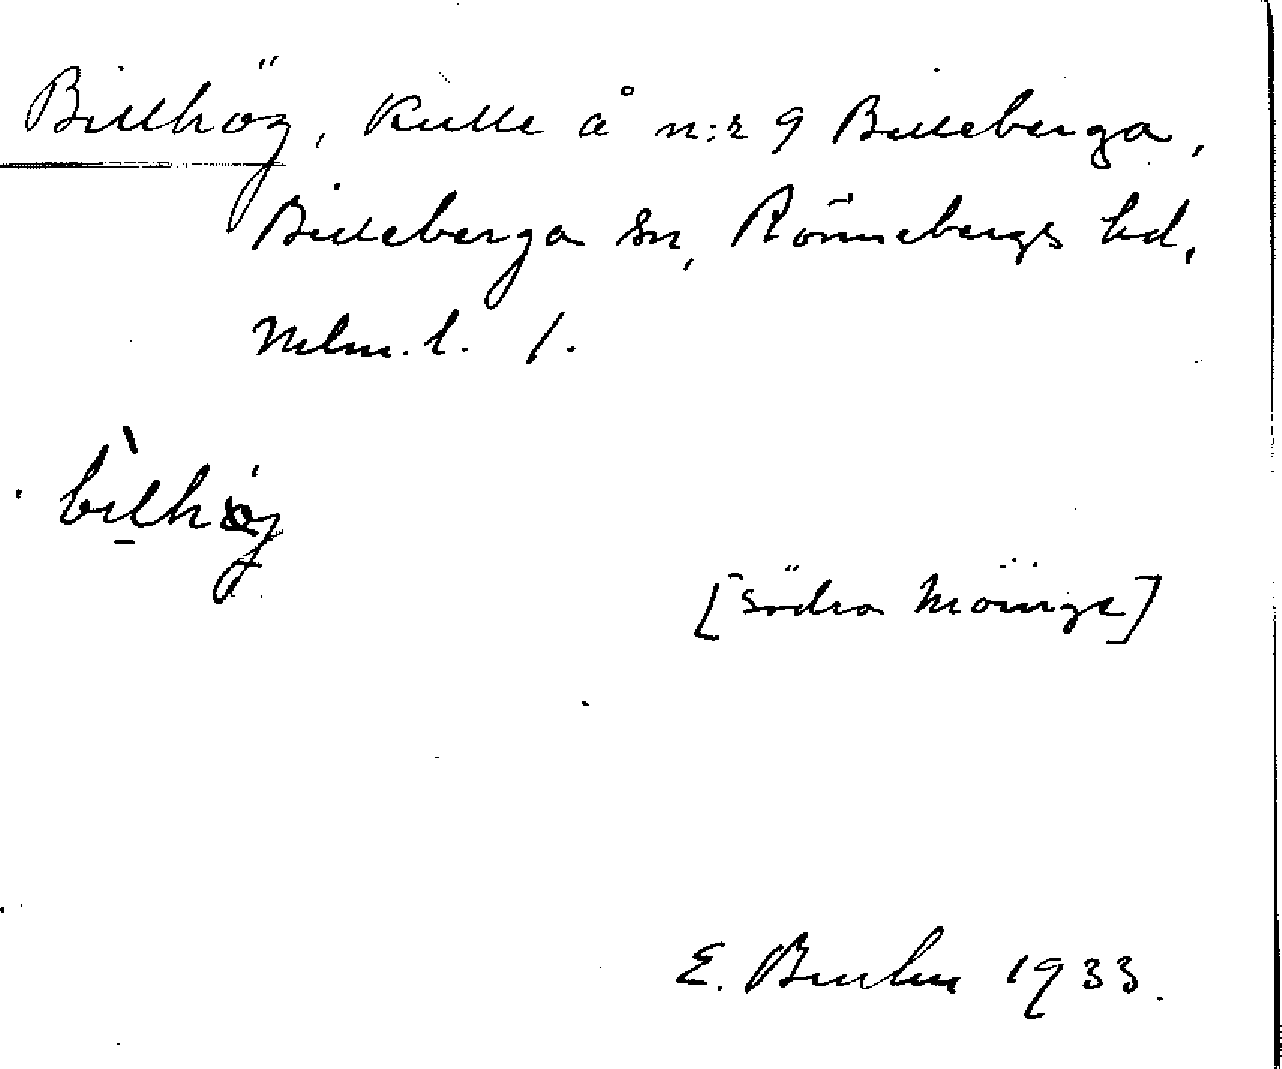 Billhög, Kulle å n:r 9 Billeberga,
Billeberga sn, Rönnebergs hd,
Mlm. l. 1.
bilhøj
[Södra Möinge]
E. 1933.